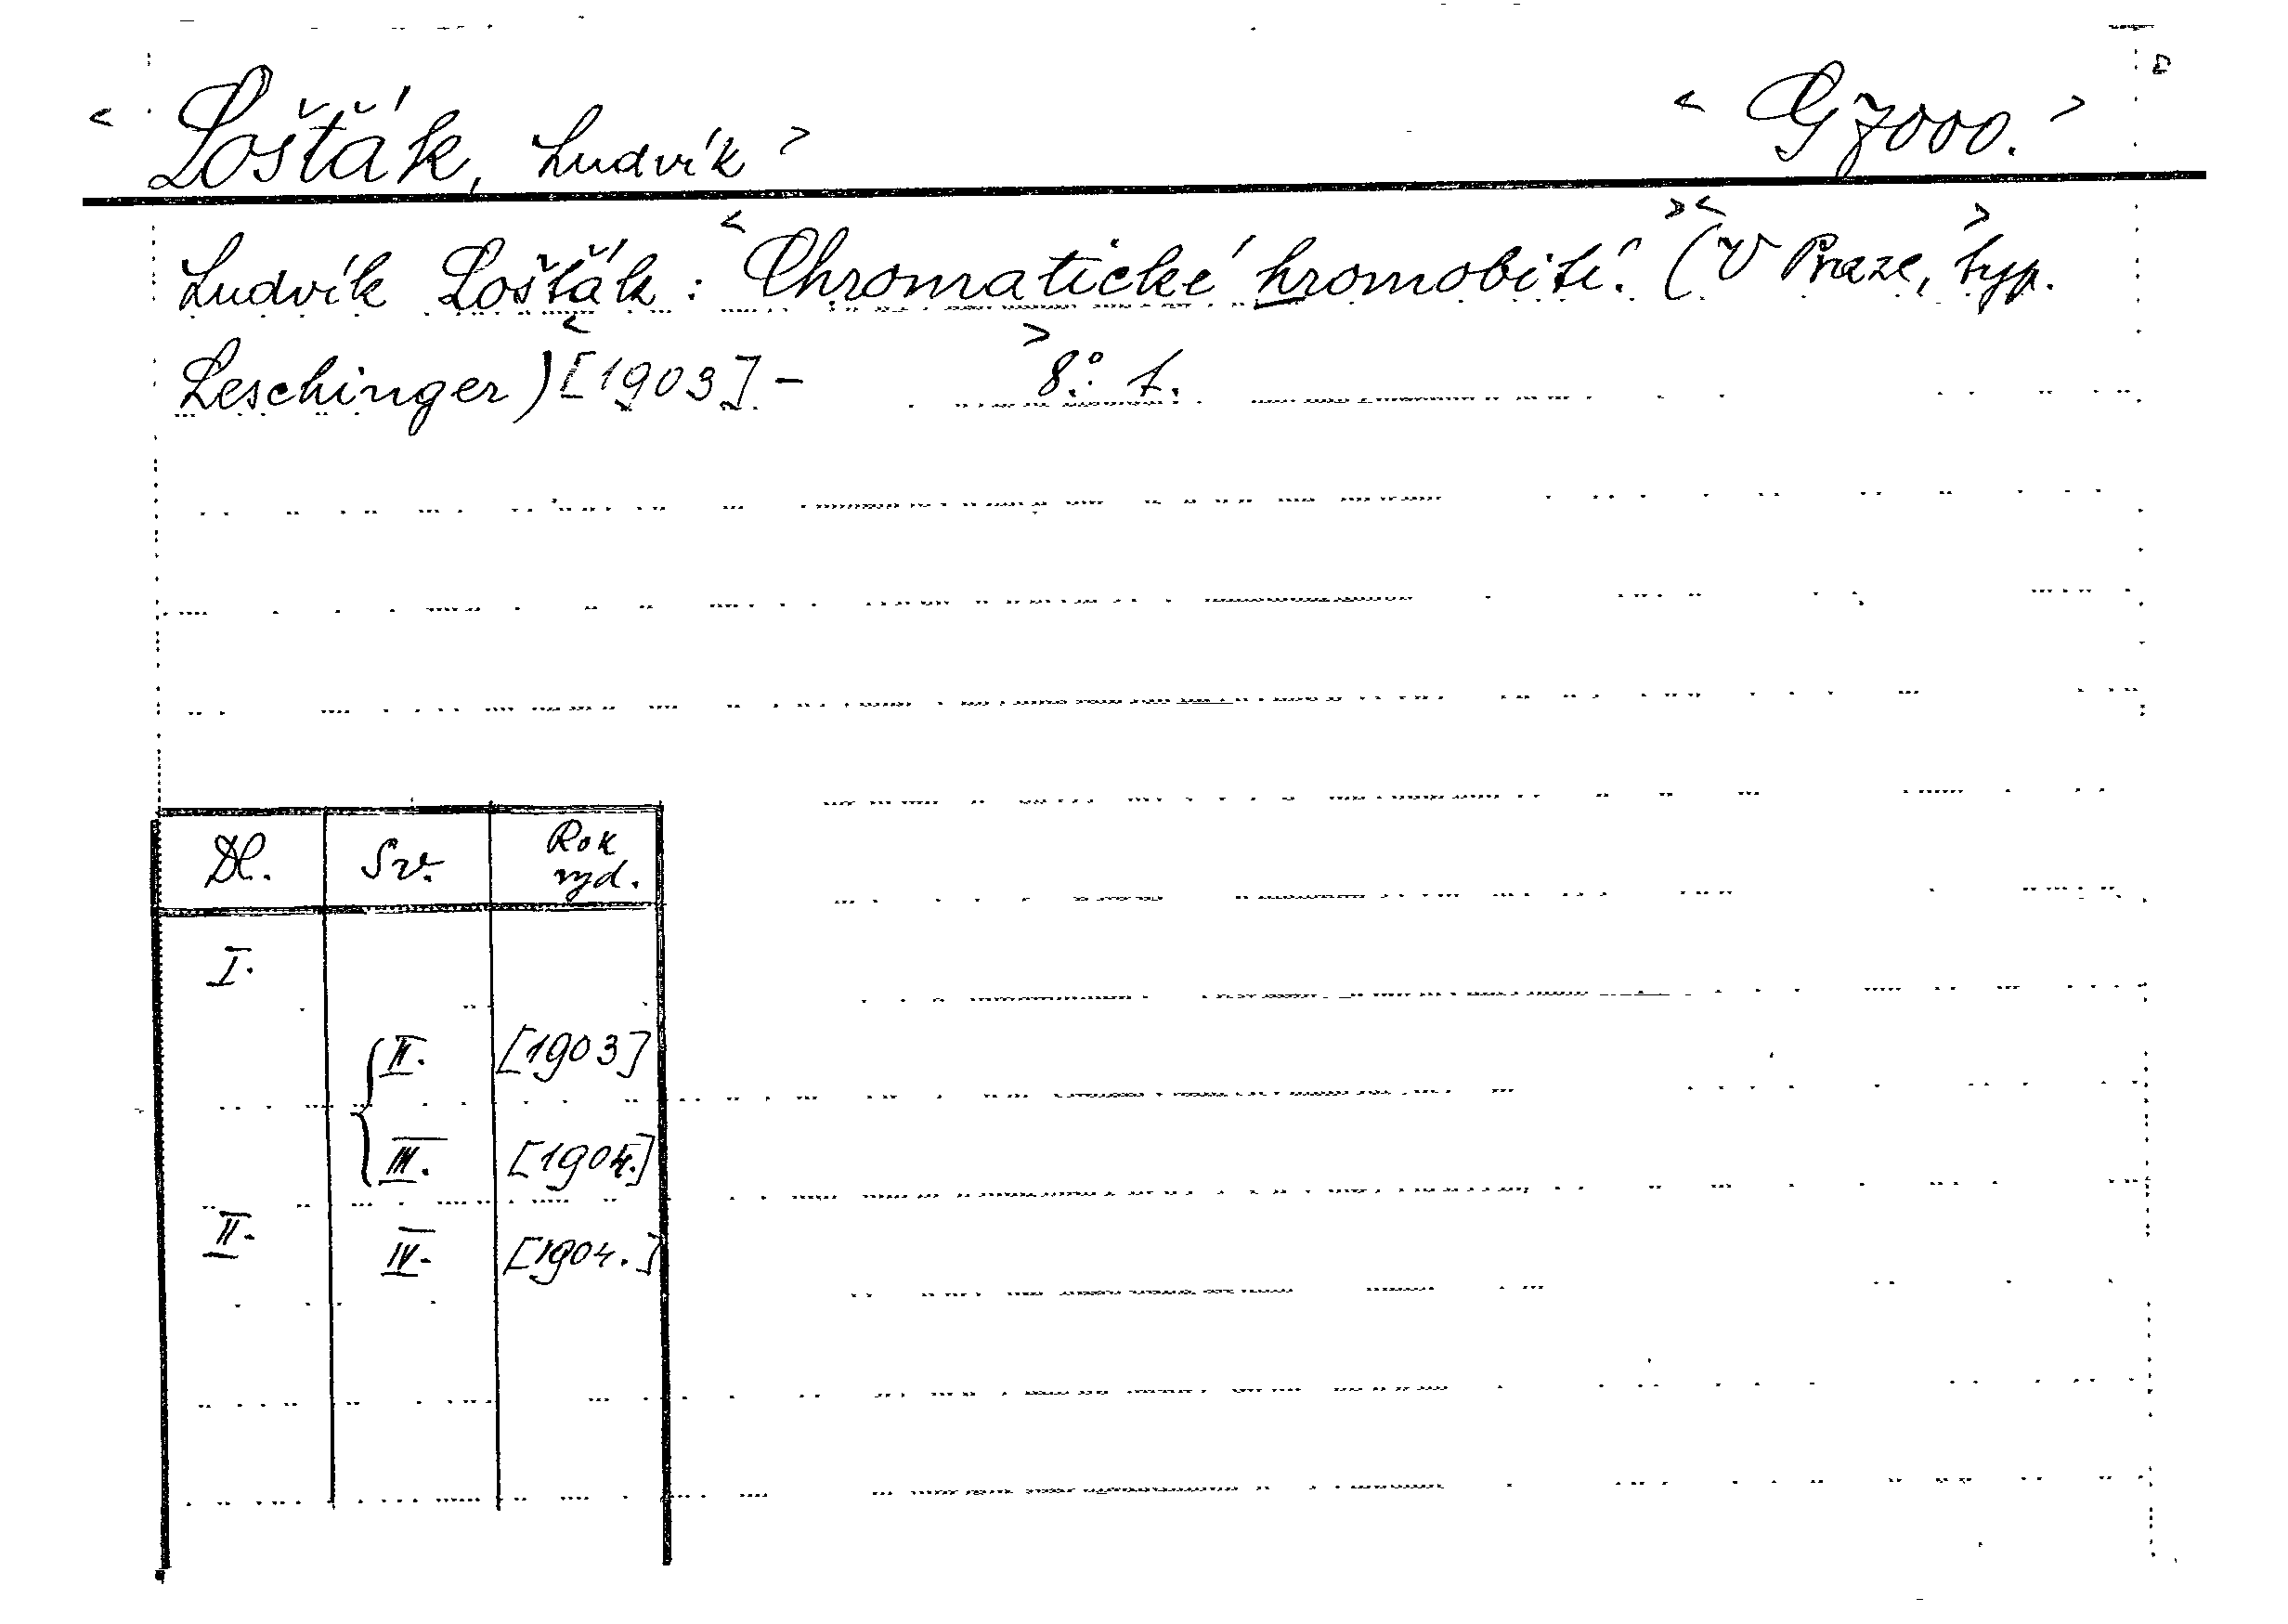 < Lošťák, Ludvík > < G 7000. >
Ludvík Lošťák: < Chromatické hromobití. > < (V Praze, > typ.
Leschinger) < [1903] - > 8°. f.
Dl. Sv. Rok vyd.
I.
II. [1903]
III. [1904.]
II. IV. [1904.]